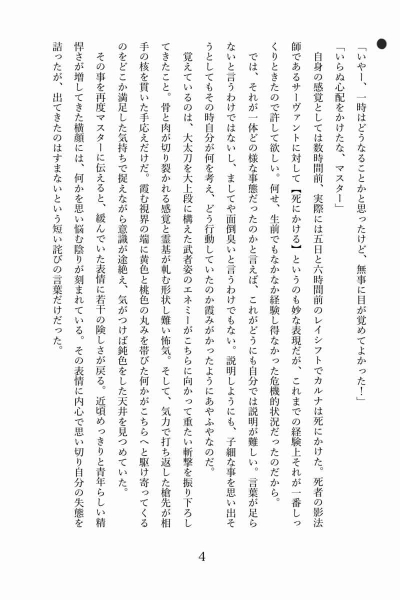 ●
「いやー、一時はどうなることかと思ったけど、無事に目が覚めてよかった！」
「いらぬ心配をかけたな、マスター」
　自身の感覚としては数時間前、実際には五日と六時間前のレイシフトでカルナは死にかけた。死者の影法
師であるサーヴァントに対して【死にかける】というのも妙な表現だが、これまでの経験上それが一番しっ
くりときたので許して欲しい。何せ、生前でもなかなか経験し得なかった危機的状況だったのだから。
　では、それが一体どの様な事態だったのかと言えば、これがどうにも自分では説明が難しい。言葉が足ら
ないと言うわけではないし、ましてや面倒臭いと言うわけでもない。説明しようにも、子細な事を思い出そ
うとしてもその時自分が何を考え、どう行動していたのか霞みがかったようにあやふやなのだ。
　覚えているのは、大太刀を大上段に構えた武者姿のエネミーがこちらに向かって重たい斬撃を振り下ろし
てきたこと。骨と肉が切り裂かれる感覚と霊基が軋む形状し難い怖気。そして、気力で打ち返した槍先が相
手の核を貫いた手応えだけだ。霞む視界の端に黄色と桃色の丸みを帯びた何かがこちらへと駆け寄ってくる
のをどこか満足した気持ちで捉えながら意識が途絶え、気がつけば鈍色をした天井を見つめていた。
　その事を再度マスターに伝えると、緩んでいた表情に若干の険しさが戻る。近頃めっきりと青年らしい精
悍さが増してきた横顔には、何かを思い悩む陰りが刻まれている。その表情に内心で思い切り自分の失態を
詰ったが、出てきたのはすまないという短い詫びの言葉だけだった。
4